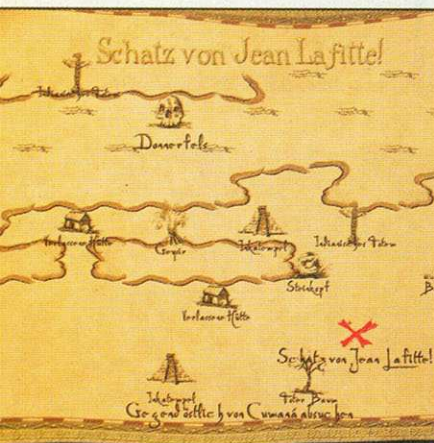 Schatz von Jean Lafitte!
Indianischer Totem
Donnerfels
Verlassene Hütte
Geysir
Inkatempel
Indianischer Totem
Steinkopf
B
Verlassene Hütte
Schatz von Jean Lafitte!
Inkatempel
Toter Baum
Gegend östlich von Cumaná absuchen